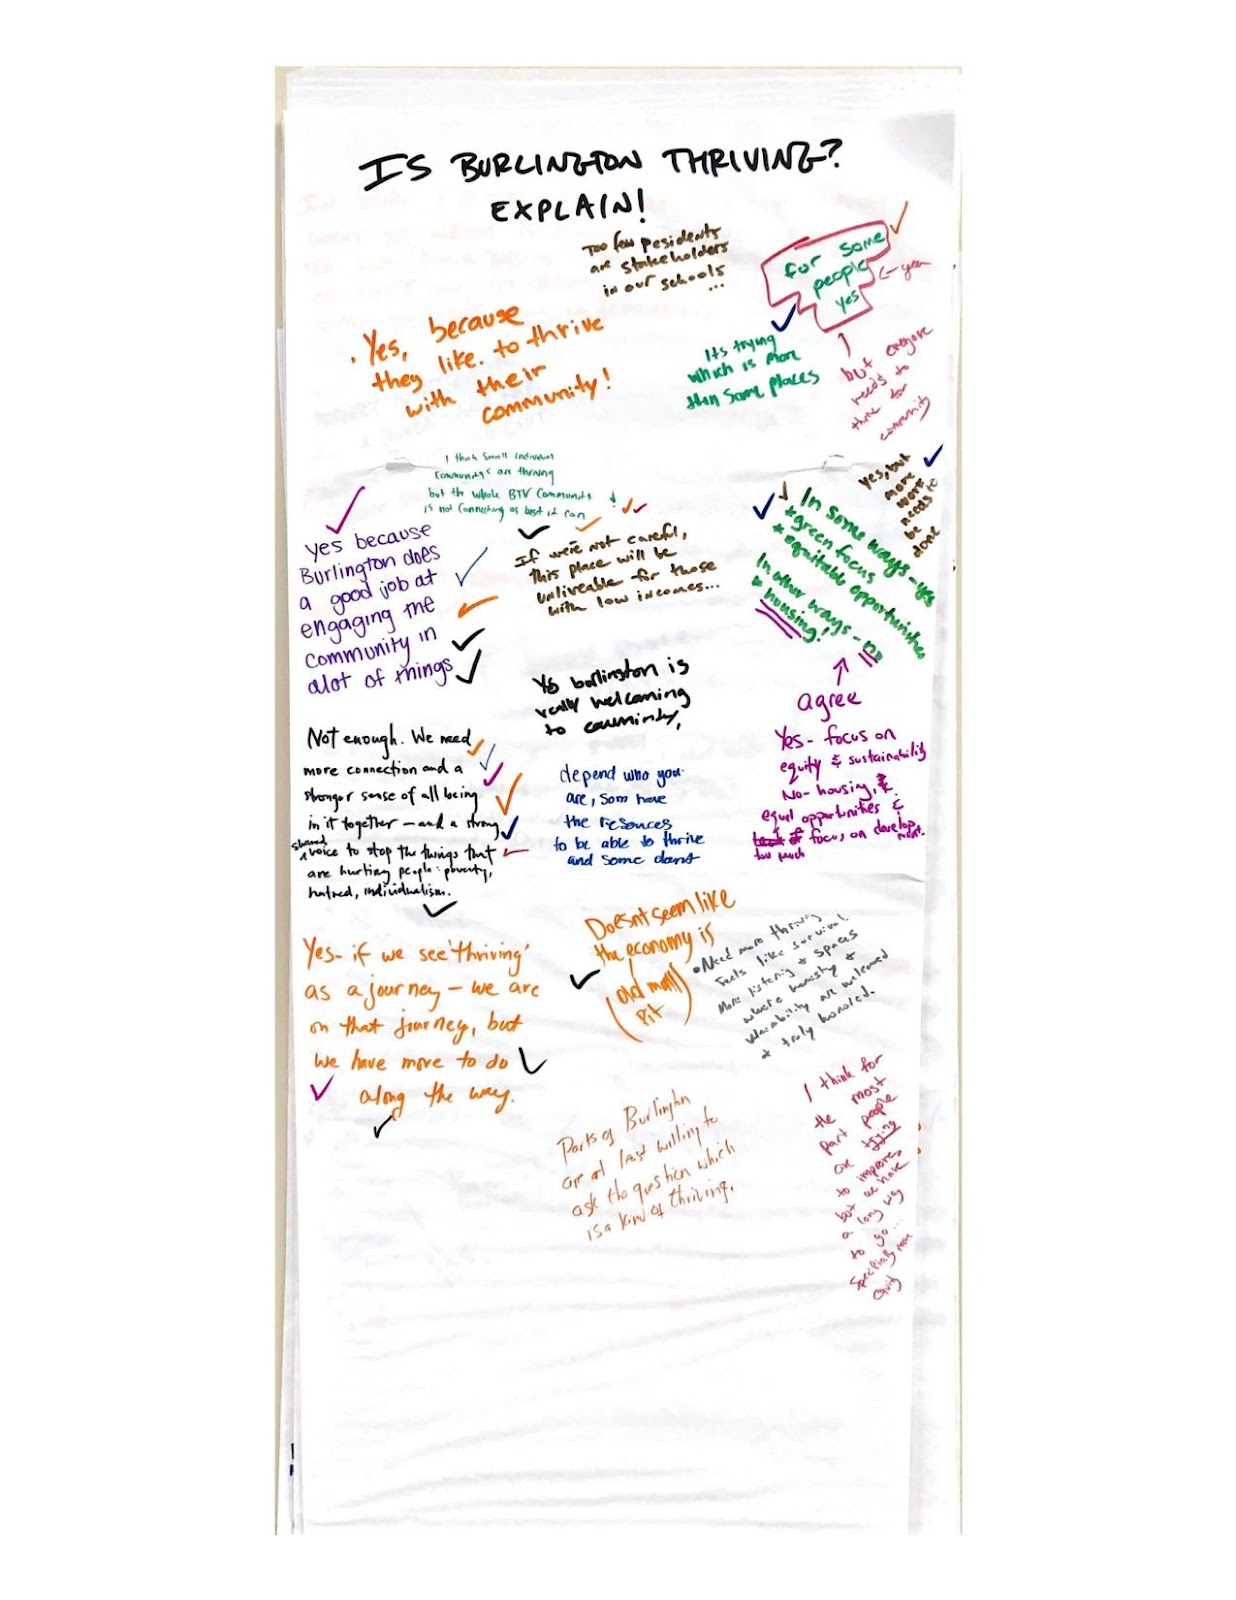 IS BURLINGTON THRIVING?
EXPLAIN!
Too few pesidents
are stakeholders
in our schools
...
for some
people
yes
<- yea
but everyone
needs to
thrive for
community
Its trying
which is more
then some places
. Yes, because
they like. to thrive
with their
community!
I think small individual
communitys are thriving
but the whole BTV community
is not connecting as best it can
yes, but
more
work
needs to
be
done
yes because
Burlington does
a good job at
engaging the
community in
alot of things
If we're not careful,
this place will be
unliveable for those
with low incomes...
In some ways - yes
* green focus
* equitable opportunities
In other ways - no
* housing!
agree
Yes burlington is
really welcoming
to community,
Yes - focus on
equity & sustainability
No - housing, &
equal opportunities &
focus on development.
too much
Not enough. We need
more connection and a
stronger sense of all being
in it together - and a strong
shared
voice to stop the things that
are hurting people: poverty,
hatred, individualism.
depend who you
are, som have
the resences
to be able to thrive
and some dont
Doesn't seem like
the economy is
(old mall
pit)
• Need more thriving
Feels like survival
More listening & spaces
where honesty &
vulnerability are welcomed
& truly honored.
Yes - if we see 'thriving'
as a journey - we are
on that journey, but
we have more to do
along the way.
Parts of Burlington
are at last willing to
ask the question which
is a kind of thriving.
I think for
the most
part people
are trying
to improve,
but we have
a long way
to go...
Specially more
equity